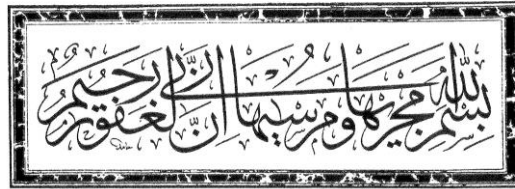 بِسْمِ اللهِ مَجْرٰىهَا وَمُرْسٰيهَا اِنَّ رَبِّى لَغَفُورٌ رَحِيمٌ